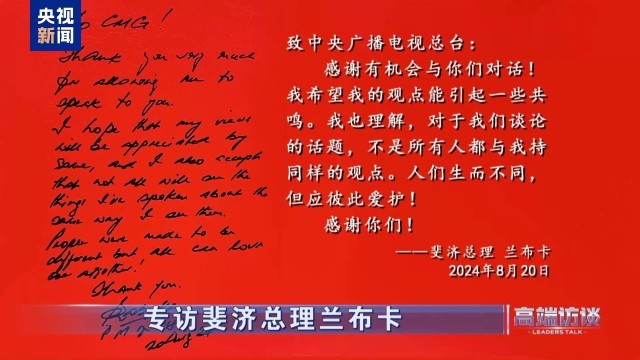 央视新闻
To CMG!
Thank you very much
for allowing me to
speak to you.
I hope that my views
will be appreciated by
some, and I also accept
that not all will see the
things I've spoken about the
same way I see them.
People were made to be
different but all can love
one another!
Thank you.
致中央广播电视总台：
感谢有机会与你们对话！
我希望我的观点能引起一些共
鸣。我也理解，对于我们谈论
的话题，不是所有人都与我持
同样的观点。人们生而不同，
但应彼此爱护！
感谢你们！
——斐济总理 兰布卡
2024年8月20日
专访斐济总理兰布卡
高端访谈
LEADERS TALK